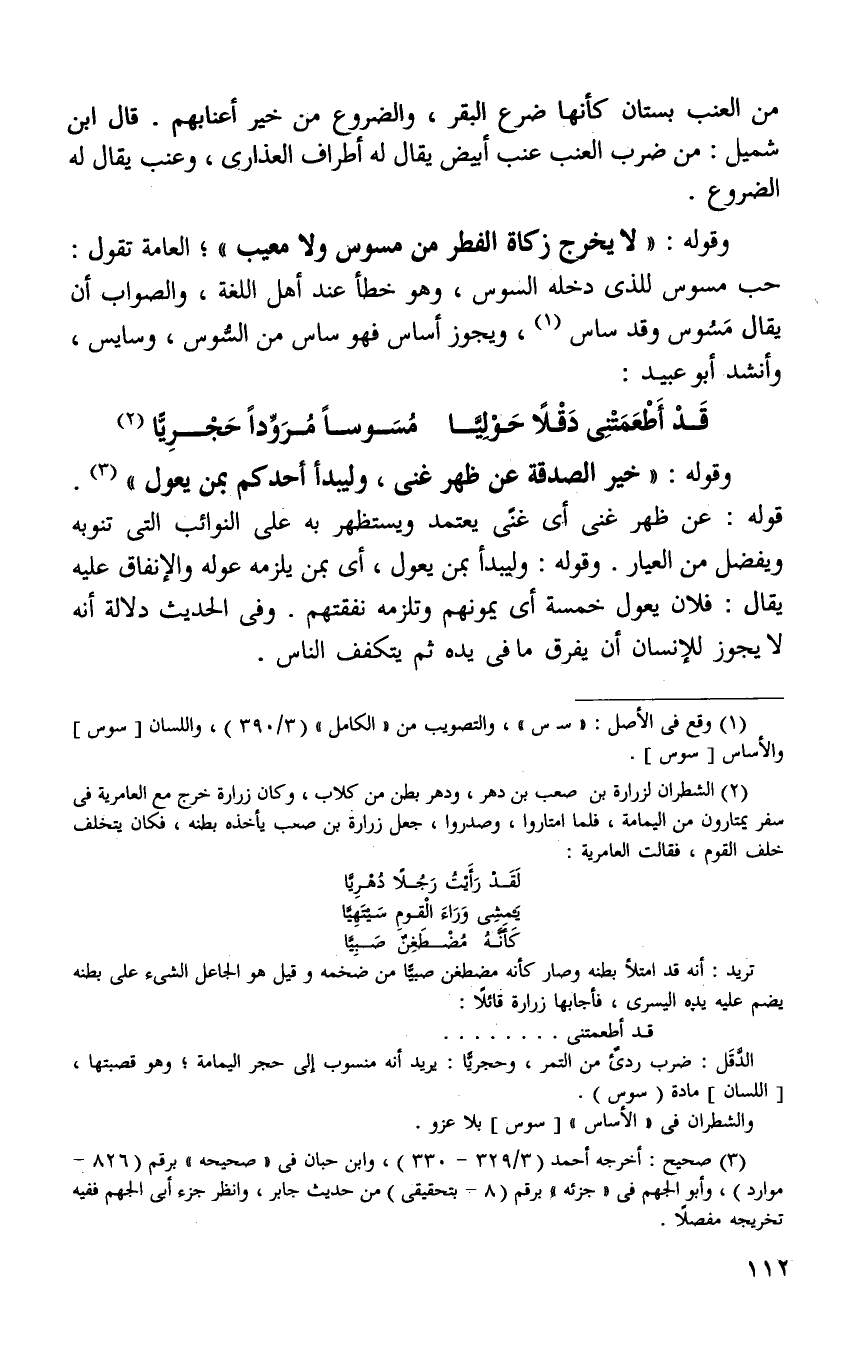 من العنب بستان كأنها ضرع البقر ، والضروع من خير أعنابهم . قال ابن
شميل : من ضرب العنب عنب أبيض يقال له أطراف العذارى ، وعنب يقال له
الضروع .
وقوله : « لا يخرج زكاة الفطر من مسوس ولا معيب » ؛ العامة تقول :
حب مسوس للذى دخله السوس ، وهو خطأ عند أهل اللغة ، والصواب أن
يقال مَسُوس وقد ساس (١) ، ويجوز أساس فهو ساس من السُّوس ، وسايس ،
وأنشد أبو عبيد :
قَـدْ أَطْعَمَتْنِى دَقْلًا حَوْلِيًّـا مُسَـوسـاً مُـرَوِّداً حَجْـرِيًّا (٢)
وقوله : « خير الصدقة عن ظهر غنى ، وليبدأ أحدكم بمن يعول » (٣) .
قوله : عن ظهر غنى أى غنًى يعتمد ويستظهر به على النوائب التى تنوبه
ويفضل من العيار . وقوله : وليبدأ بمن يعول ، أى بمن يلزمه عوله والإنفاق عليه
يقال : فلان يعول خمسة أى يمونهم وتلزمه نفقتهم . وفى الحديث دلالة أنه
لا يجوز للإنسان أن يفرق ما فى يده ثم يتكفف الناس .
(١) وقع فى الأصل : « س س » ، والتصويب من « الكامل » ( ٣٩٠/٣ ) ، واللسان [ سوس ]
والأساس [ سوس ] .
(٢) الشطران لزرارة بن صعب بن دهر ، ودهر بطن من كلاب ، وكان زرارة خرج مع العامرية فى
سفر يمتارون من اليمامة ، فلما امتاروا ، وصدروا ، جعل زرارة بن صعب يأخذه بطنه ، فكان يتخلف
خلف القوم ، فقالت العامرية :
لَقَـدْ رَأَيْتُ رَجُـلًا دُهْـرِيًّا
يَمْشِى وَرَاءَ الْقَـومِ سَيْتَهِيًّا
كَأَنَّـهُ مُضْـطَغِنٌ صَـبِيًّا
تريد : أنه قد امتلأ بطنه وصار كأنه مضطغن صبيًّا من ضخمه و قيل هو الجاعل الشىء على بطنه
يضم عليه يده اليسرى ، فأجابها زرارة قائلًا :
قـد أطعمتنى . . . . . . . .
الدَّقَل : ضرب ردئ من التمر ، وحجريًّا : يريد أنه منسوب إلى حجر اليمامة ؛ وهو قصبتها ،
[ اللسان ] مادة ( سوس ) .
والشطران فى « الأساس » [ سوس ] بلا عزو .
(٣) صحيح : أخرجه أحمد ( ٣٢٩/٣ – ٣٣٠ ) ، وابن حبان فى « صحيحه » برقم ( ٨٢٦ –
موارد ) ، وأبو الجهم فى « جزئه » برقم ( ٨ – بتحقيقى ) من حديث جابر ، وانظر جزء أبى الجهم ففيه
تخريجه مفصلًا .
١١٢